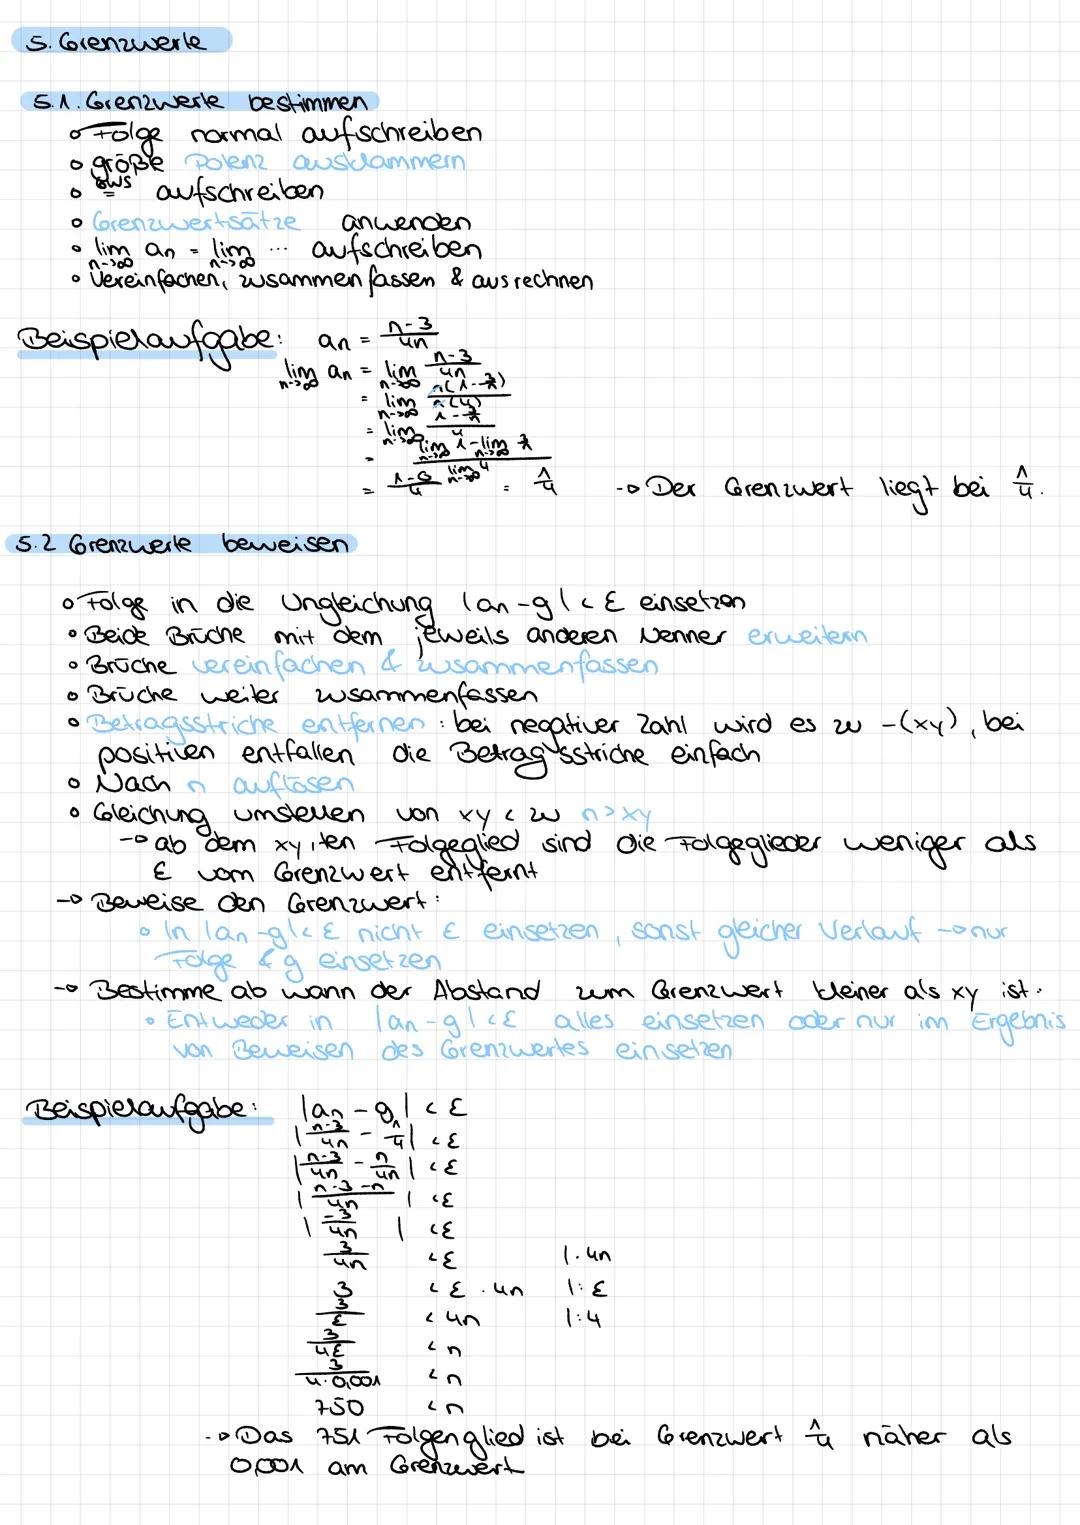 5. Grenzwerte
5.1. Grenzwerte bestimmen
o Folge normal aufschreiben
o größte Potenz ausklammern
o GWS aufschreiben
o Grenzwertsätze anwenden
o lim n->∞ an = lim n->∞ ... aufschreiben
o Vereinfachen, zusammenfassen & ausrechnen
Beispielaufgabe: an = (n-3)/(4n)
lim n->∞ an = lim n->∞ (n-3)/(4n)
= lim n->∞ (n(1-3/n))/(n(4))
= lim n->∞ (1-3/n)/4
= (lim n->∞ 1 - lim n->∞ 3/n)/(lim n->∞ 4)
= (1-0)/4 = 1/4 -> Der Grenzwert liegt bei 1/4.
5.2 Grenzwerte beweisen
o Folge in die Ungleichung |an-g| < ε einsetzen
o Beide Brüche mit dem jeweils anderen Nenner erweitern
o Brüche vereinfachen & zusammenfassen
o Brüche weiter zusammenfassen
o Betragsstriche entfernen: bei negativer Zahl wird es zu -(xy), bei
positiven entfallen die Betragsstriche einfach
o Nach n auflösen
o Gleichung umstellen von xy < zu n>xy
-> ab dem xy,ten Folgeglied sind die Folgeglieder weniger als
ε vom Grenzwert entfernt
-> Beweise den Grenzwert:
o In |an-g|< ε nicht ε einsetzen, sonst gleicher Verlauf -> nur
Folge & g einsetzen
-> Bestimme ab wann der Abstand zum Grenzwert kleiner als xy ist.
o Entweder in |an-g|<ε alles einsetzen oder nur im Ergebnis
von Beweisen des Grenzwertes einsetzen
Beispielaufgabe: |an - g| < ε
|(n-3)/(4n) - 1/4| < ε
|(n-3)/(4n) - n/(4n)| < ε
|(n-3-n)/(4n)| < ε
|(-3)/(4n)| < ε
3/(4n) < ε |·4n
3 < ε · 4n |: ε
3/ε < 4n |:4
3/(4ε) < n
3/(4·0,001) < n
750 < n
-> Das 751 Folgenglied ist bei Grenzwert 1/4 näher als
0,001 am Grenzwert